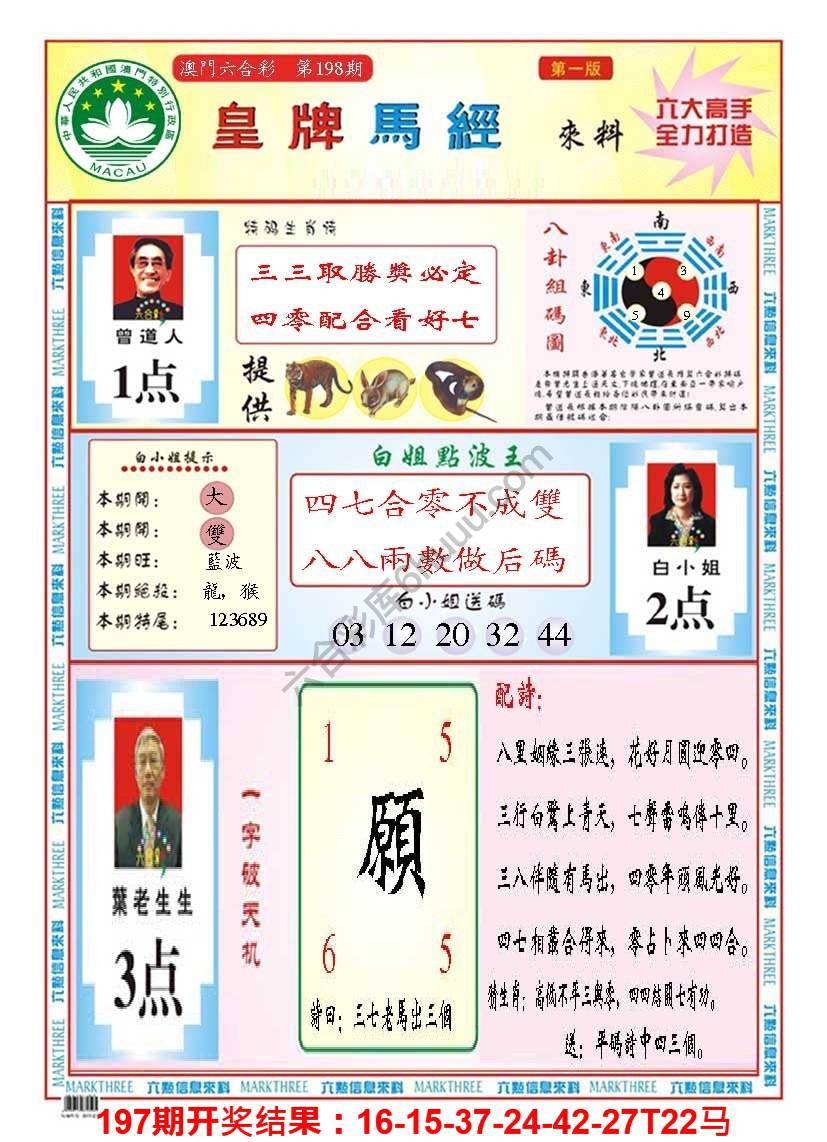 澳門六合彩 第198期
第一版
中華人民共和國澳門特別行政區
MACAU
皇牌馬經
來料
六大高手
全力打造
特碼生肖詩
三三取勝獎必定
四零配合看好七
曾道人
1点
提供
八卦組碼圖
南
東南
西南
東
西
東北
西北
北
1
3
4
5
9
白小姐提示
本期開: 大
本期開: 雙
本期旺: 藍波
本期絕殺: 龍,猴
本期特尾: 123689
白姐點波王
四七合零不成雙
八八兩數做后碼
白小姐送碼
03 12 20 32 44
白小姐
2点
葉老生生
3点
一字破天机
1 5
願
6 5
詩曰:三七老馬出三個
配詩:
八里姻緣三張連,花好月圓迎零四。
三行白鷺上青天,七聲雷鳴傳十里。
三八伴隨有馬出,四零年頭風光好。
四七相叢合得來,零占卜來四四合。
猜生肖:高低不平三與零,四四結關七有功。
送:平碼詩中四三個。
MARKTHREE 六點信息來料 MARKTHREE 六點信息來料 MARKTHREE 六點信息來料 MARKTHREE 六點信息來料
六合彩库6huuu.com
197期开奖结果：16-15-37-24-42-27T22马